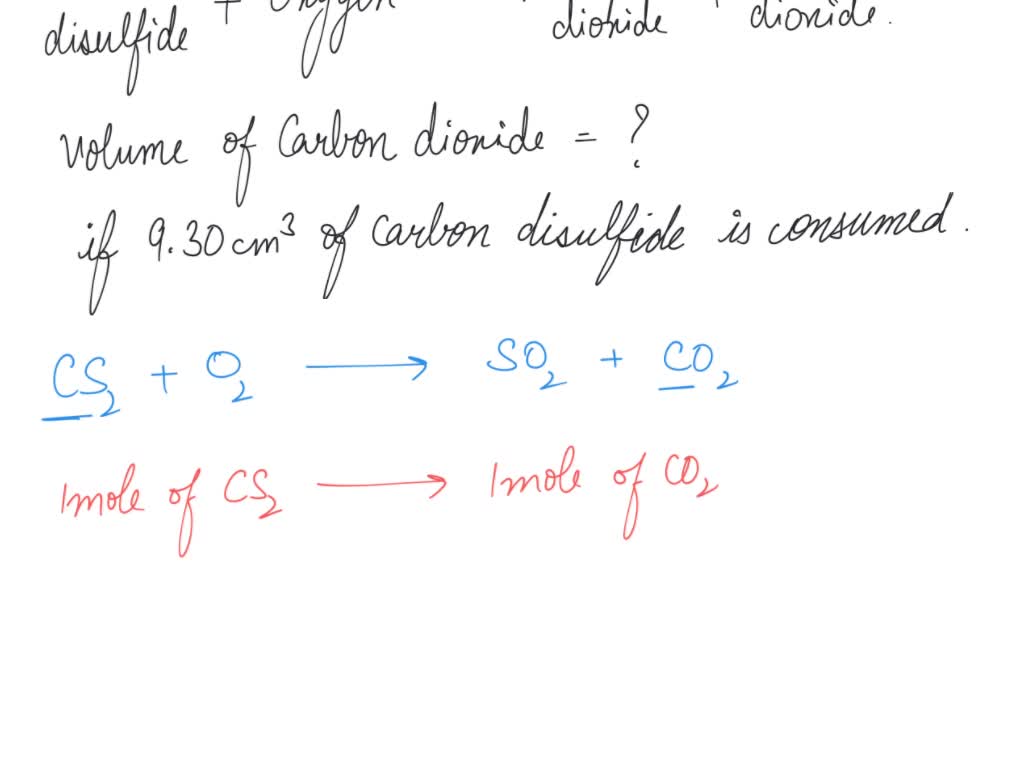 disulfide + Oxygen dioxide + dioxide.
Volume of Carbon dioxide = ?
if 9.30 cm³ of carbon disulfide is consumed.
CS₂ + O₂ ⟶ SO₂ + CO₂
1mole of CS₂ ⟶ 1mole of CO₂